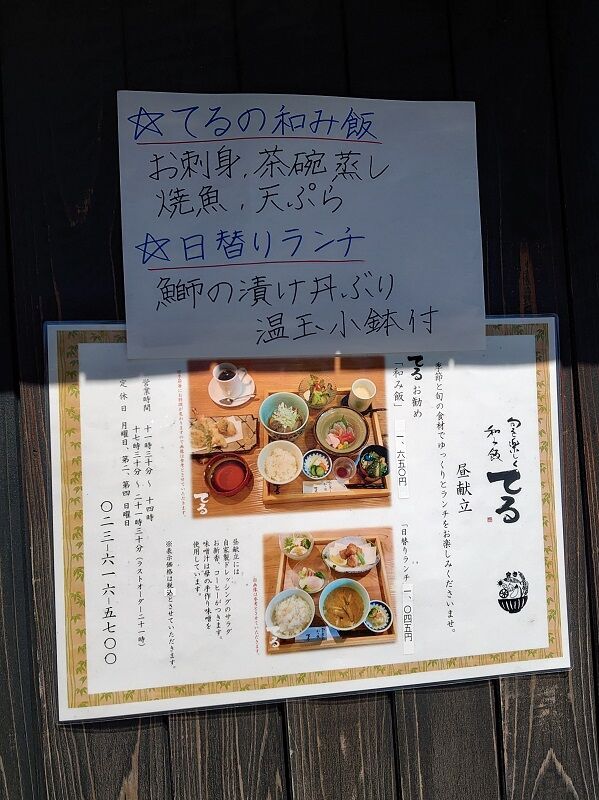 ☆てるの和み飯
お刺身、茶碗蒸し
焼魚、天ぷら
☆日替りランチ
鰤の漬け丼ぶり
温玉小鉢付
旬を楽しく
和み飯
てる
昼献立
季節と旬の食材でゆっくりとランチをお楽しみくださいませ。
てるお勧め
「和み飯」 一、六五〇円
「日替りランチ」 一、〇四五円
てる
てる
昼献立には
自家製ドレッシングのサラダ
お新香、コーヒーがつきます。
味噌汁は母の手作り味噌を
使用しています。
※表示価格は税込とさせていただきます。
営業時間 十一時三十分〜十四時
十七時三十分〜二十一時三十分（ラストオーダー二十一時）
定休日 月曜日、第二、第四日曜日
〇二三-六一六-五七〇〇